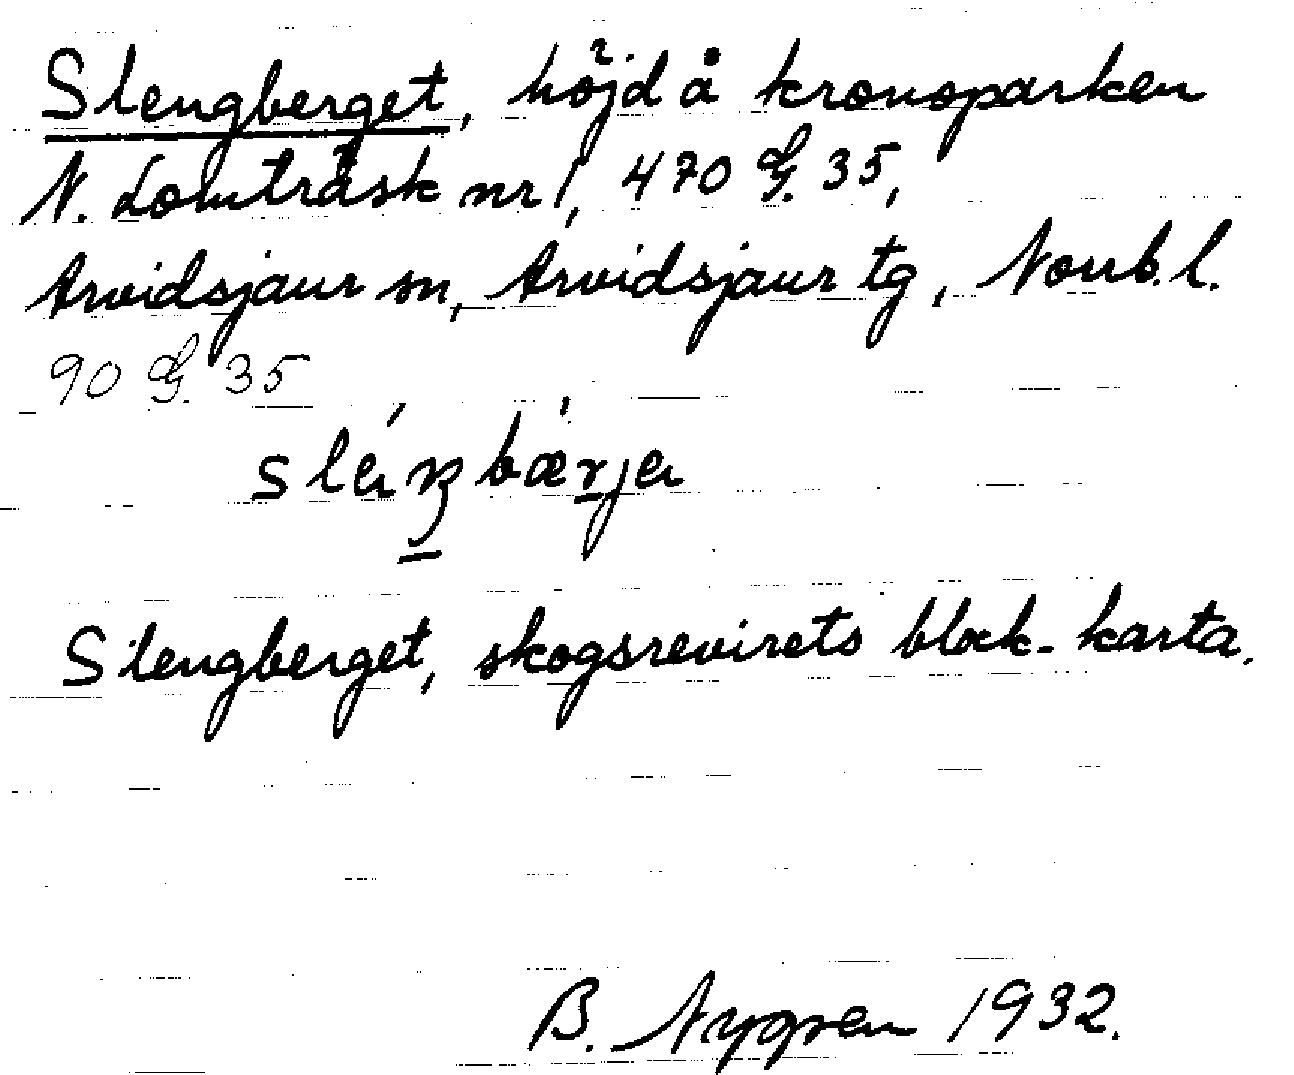 Slengberget, höjd å kronoparken
N. Lomträsk nr 1, 470 G. 35,
Arvidsjaur sn, Arvidsjaur tg, Norrb. l.
90 G. 35
sleŋbærje
Slengberget, skogsrevirets block-karta.
B. Nygren 1932.